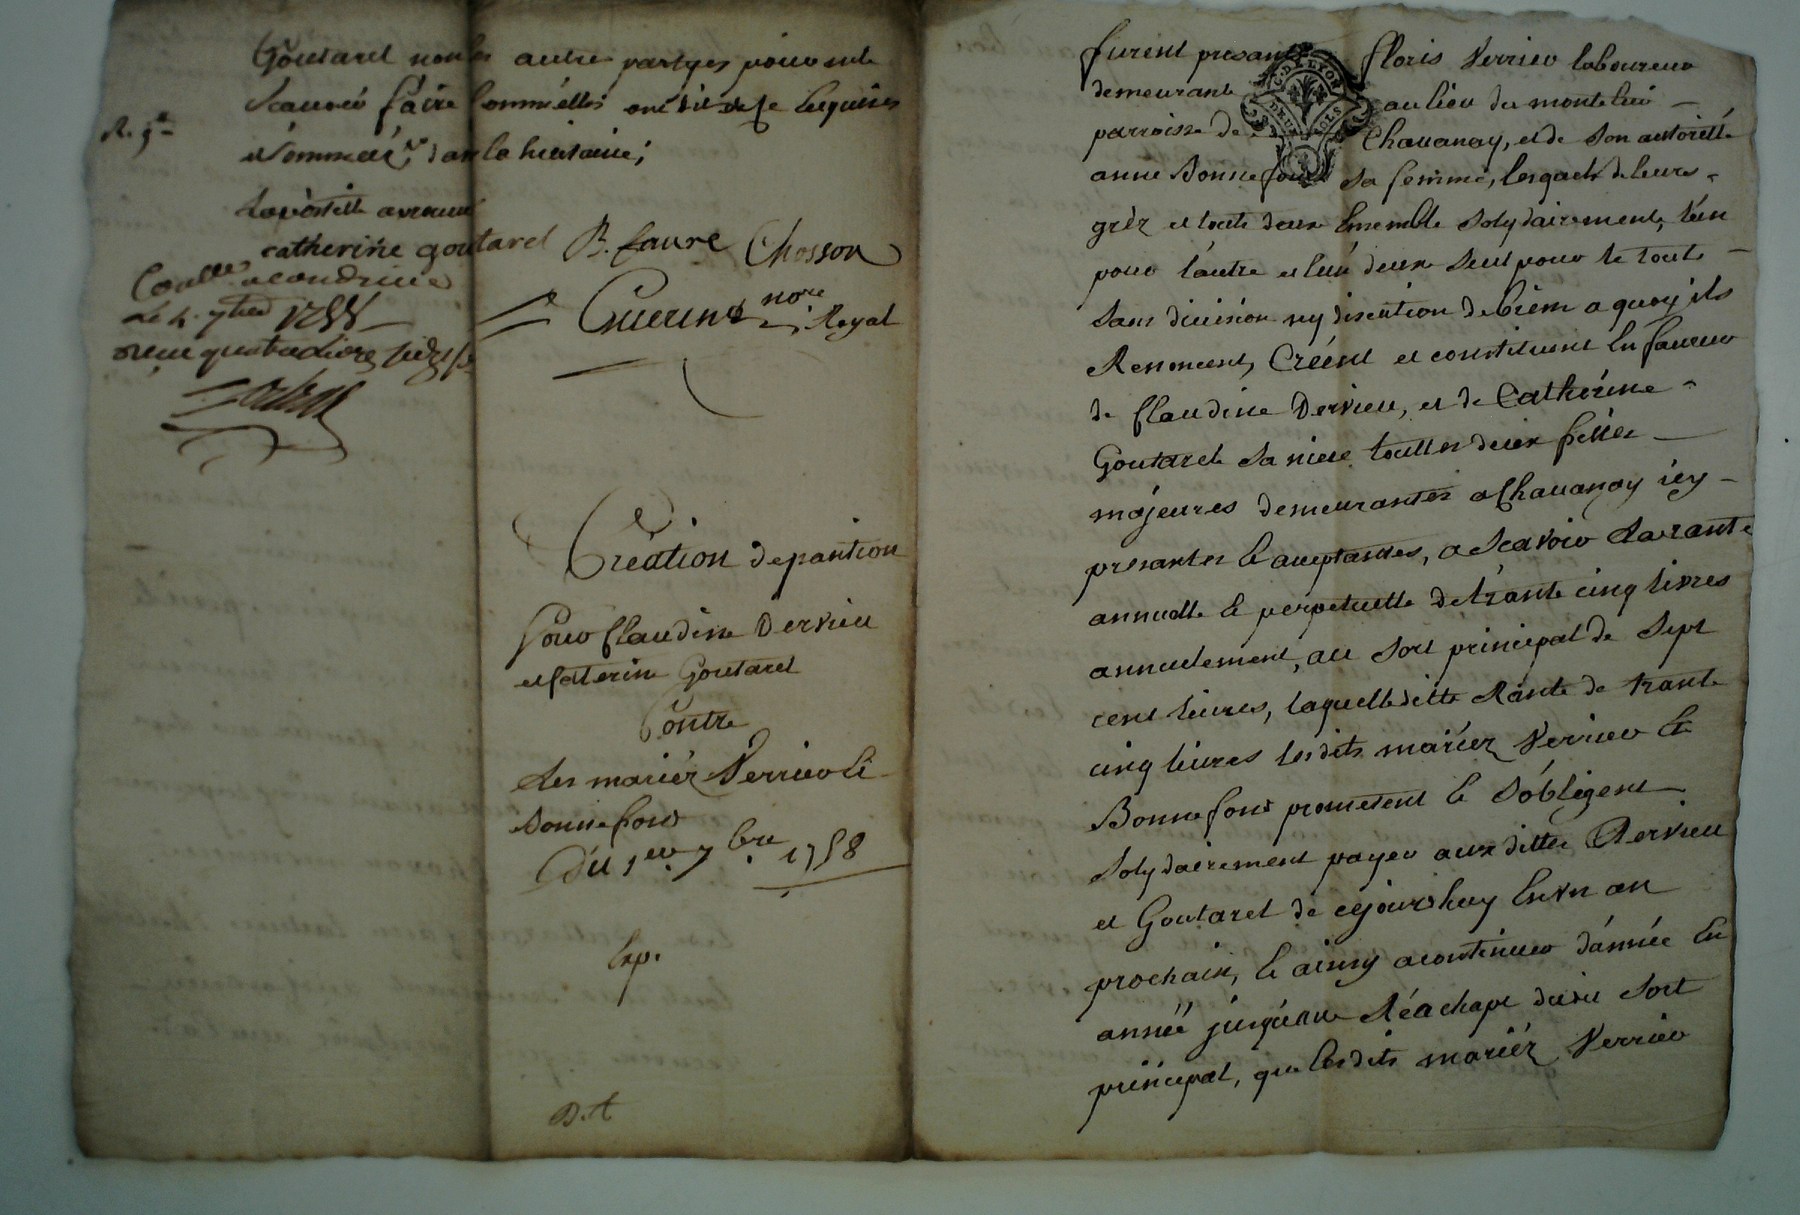 Goutaret non les autres partyes pour ne le
Scavoir faire comm'elles ont dit de ce Enquises
R. 5 s
et Sommées, dans la
approuvé
catherine goutaret B. faure Chosson
Con^lle a condrieu
Le 4. 7bre 1758
Guerin nore Royal
reçu quatre livres
Création de pantion
Pour Claudine Dervieu
et Caterine Goutaret
Contre
Les mariéz Verrier Et
Bonnefond
Du 1er 7bre 1758
Exp.
D.A
furent presants floris Verrier laboureur
G. D. LYON
DEUX SOLS
demeurant au lieu du montelier
parroisse de Chavanay, et de son autorité
anne Bonnefond sa femme, lesquels de leurs
gréz et toute deux Ensemble solydairement, l'un
pour l'autre et l'un deux seul pour le tout
sans division ny discution de biem a quoy ils
Renoncent, Créént et constituent En faveur
de Claudine Dervieu, et de Catherine
Goutaret sa niece touttes deux filles
majeures demeurantes a Chavanay icy
presantes Et acceptantes, a Scavoir la rante
annuelle Et perpetuelle de trante cinq livres
annuelement, au sort principal de Sept
cent livres, laquelle ditte Rante de trante
cinq livres lesdits mariéz Verrier Et
Bonnefond prometent Et S'obligent
solydairement payer aux dittes Dervieu
et Goutaret de cejourdhuy En un an
prochain, Et ainsy acontinuer d'année En
année jusqu'au Réachapt dudit sort
principal, que lesdits mariéz Verrier